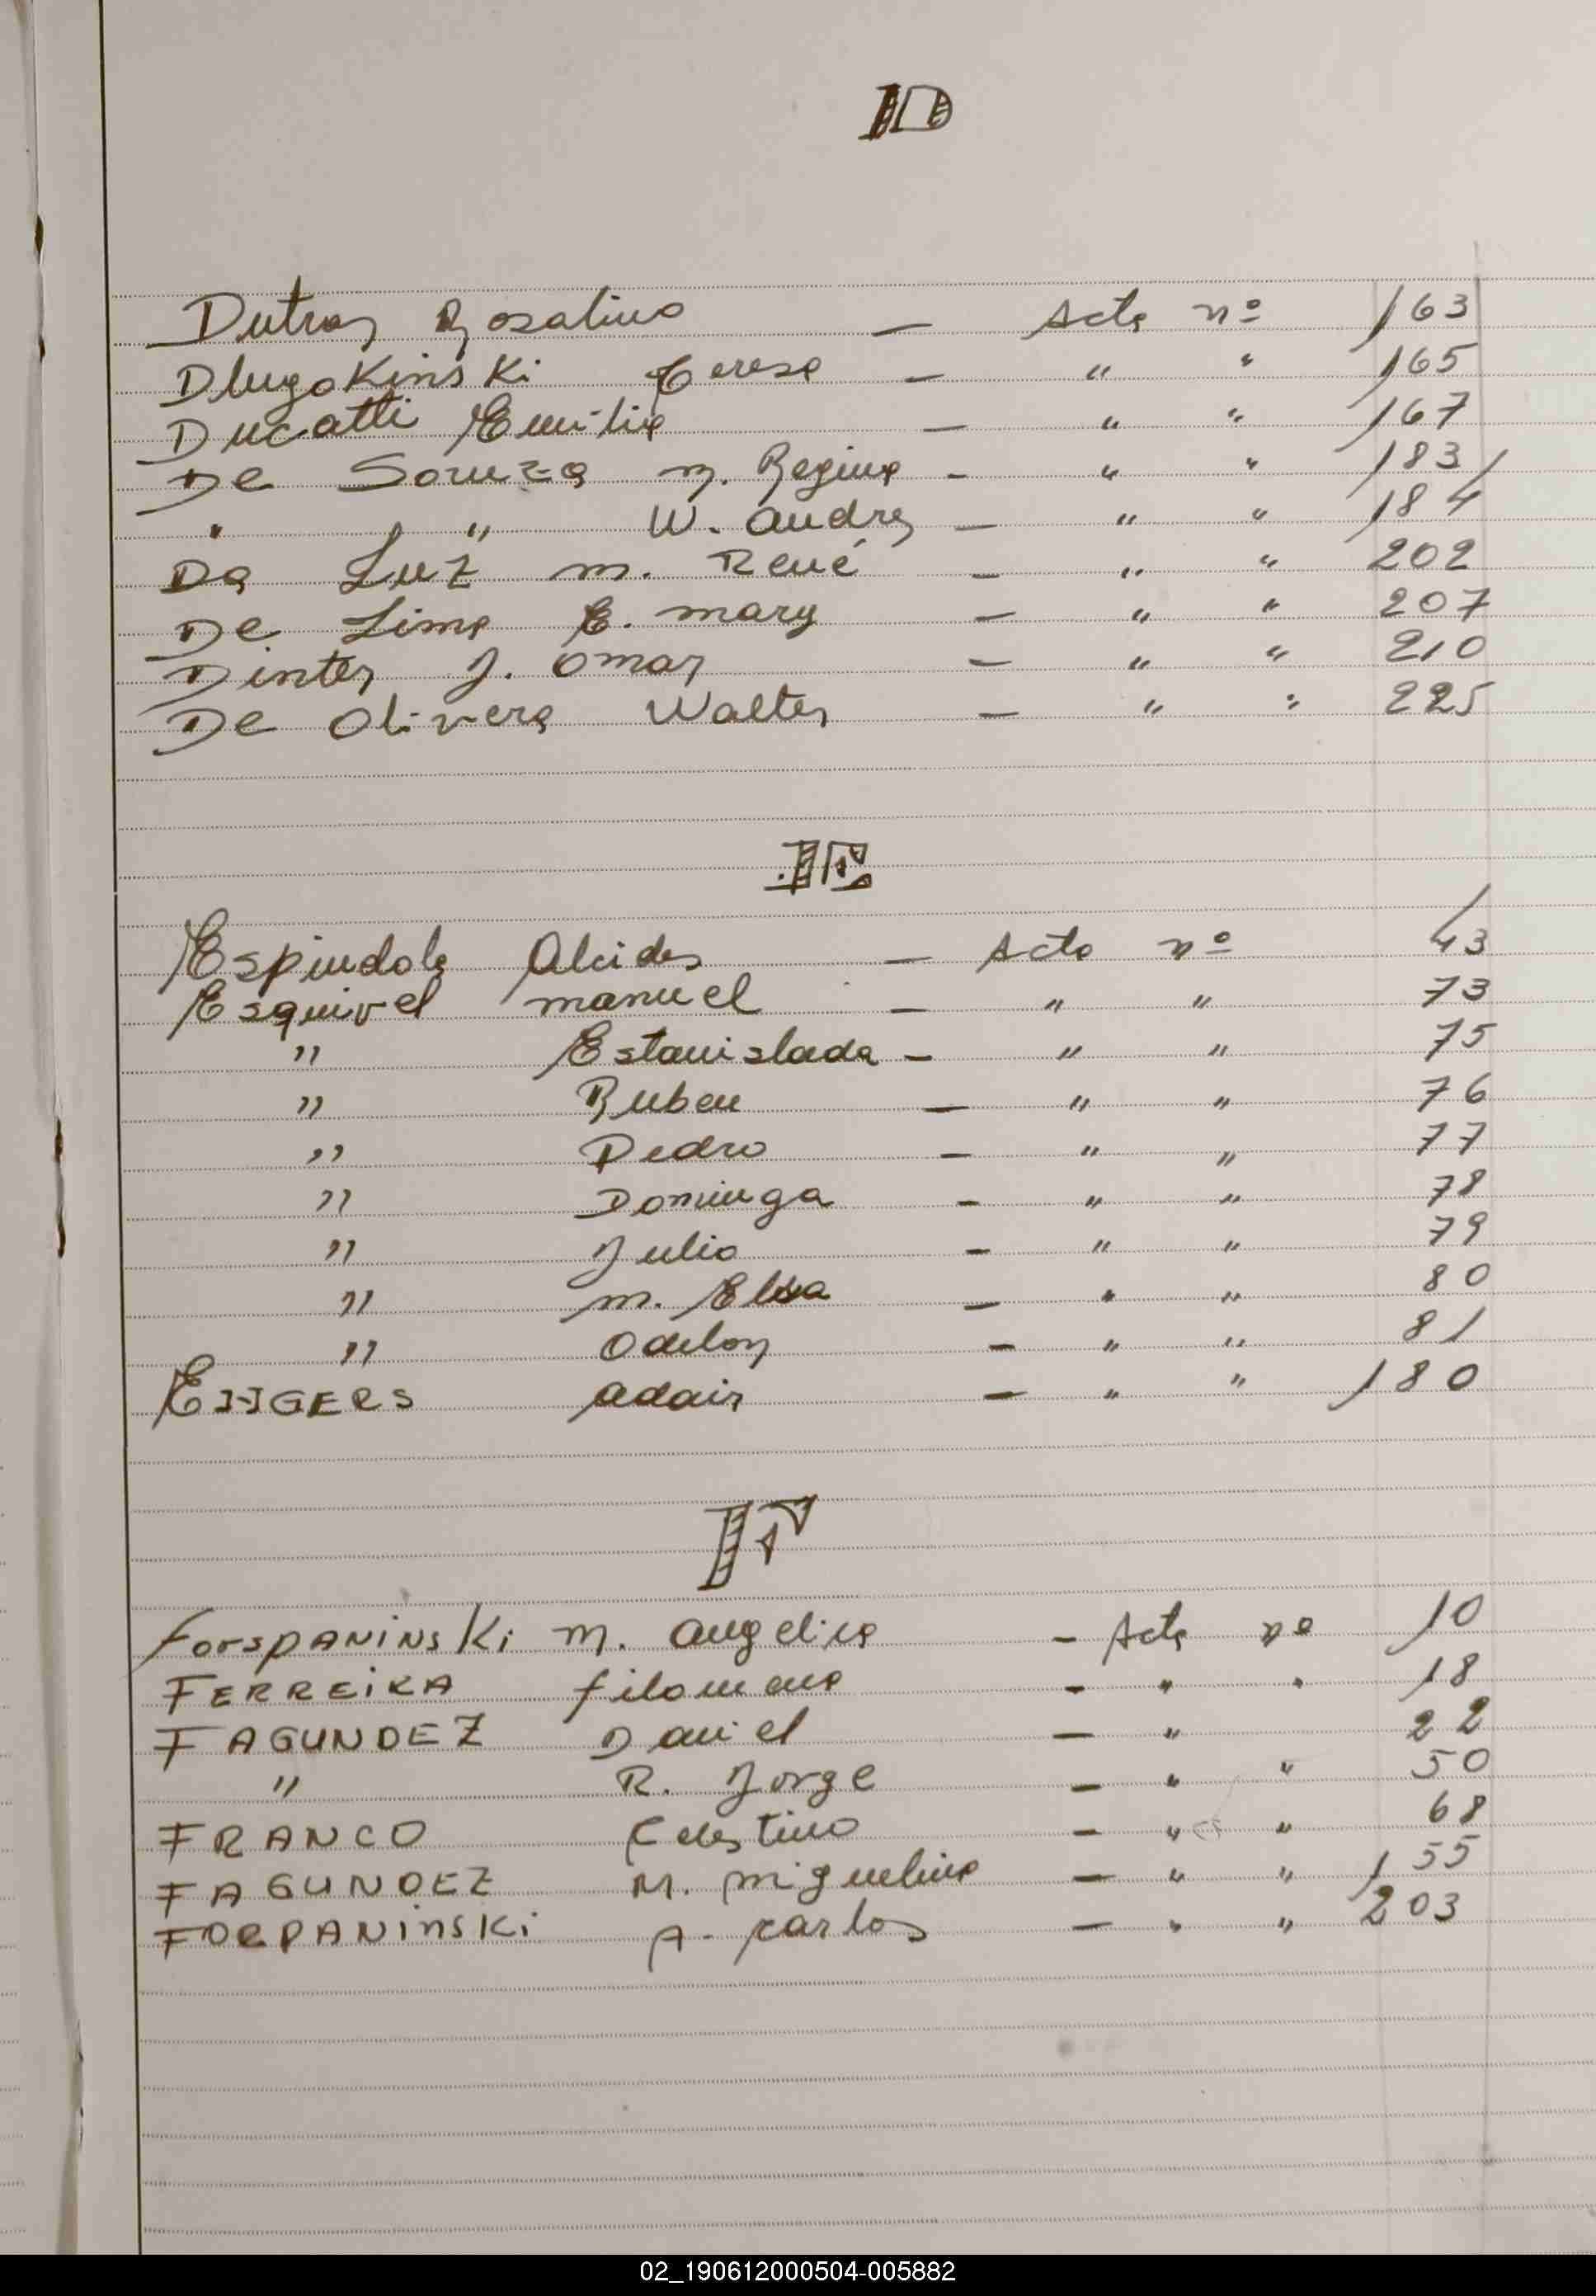 D
Dutra, Rosalino — Acta nº 163
Dlugokinski Teresa — " " 165
Ducatti Emilia — " " 167
De Souza M. Regina — " " 183
" " W. Andres — " " 184
Da Luz M. René — " " 202
De Lima E. Mary — " " 207
Dinter J. Omar — " " 210
De Olivera Walter — " " 225
E
Espindola Alcides — Acta nº 43
Esquivel Manuel — " " 73
" Estanislada — " " 75
" Ruben — " " 76
" Pedro — " " 77
" Dominga — " " 78
" Julio — " " 79
" M. Elsa — " " 80
" Odelon — " " 81
Adair — " " 180
F
ForspaninsKi M. Angelica — Acta nº 10
FERREiRA filomena — " " 18
FAGUNDEZ Daniel — " 22
" R. Jorge — " " 50
FRANCO Celestino — " " 68
FAGUNDEZ M. Miguelina — " " 155
FORPANinsKi A. Carlos — " " 203
02_190612000504-005882